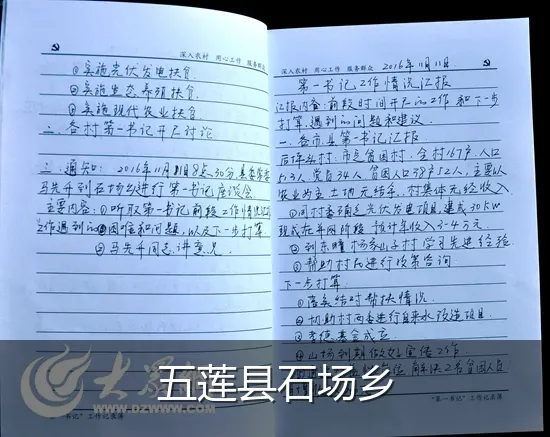 深入农村 用心工作 服务群众
①实施光伏发电扶贫.
②实施生态养殖扶贫
③实施现代农业扶贫.
二、各村第一书记开展讨论
三、通知: 2016年11月11日8点30分,县委常委
马先千到石场乡进行第一书记座谈会.
主要内容:①听取第一书记前段工作情况
工作遇到的困难和问题,以及下一步打算
②马先千同志讲意见
"第一书记"工作记录簿
深入农村 用心工作 服务群众 2016年11月11日.
第一书记工作情况汇报
汇报内容:前段时间开展的工作和下一步
打算,遇到的问题和建议.
一、各市县第一书记汇报
市定贫困村,全村167户,人口
513人,党员34人,贫困人口38户52人,主要以
农业为主,土地无结余,村集体无经收入.
①同村委确定光伏发电项目,建成30KW
现在并网阶段 预计年收入3-4万元
②到东曈杨家山子村学习先进经验
③帮助村民进行政策咨询
下一步打算:
①落实结对帮扶情况.
②协助村两委进行自来水改造项目.
③孝德基金成立.
宣传工作
解决2名贫困人员
"第一书记"工作记录簿
五莲县石场乡
大众网
WWW.DZWWW.COM